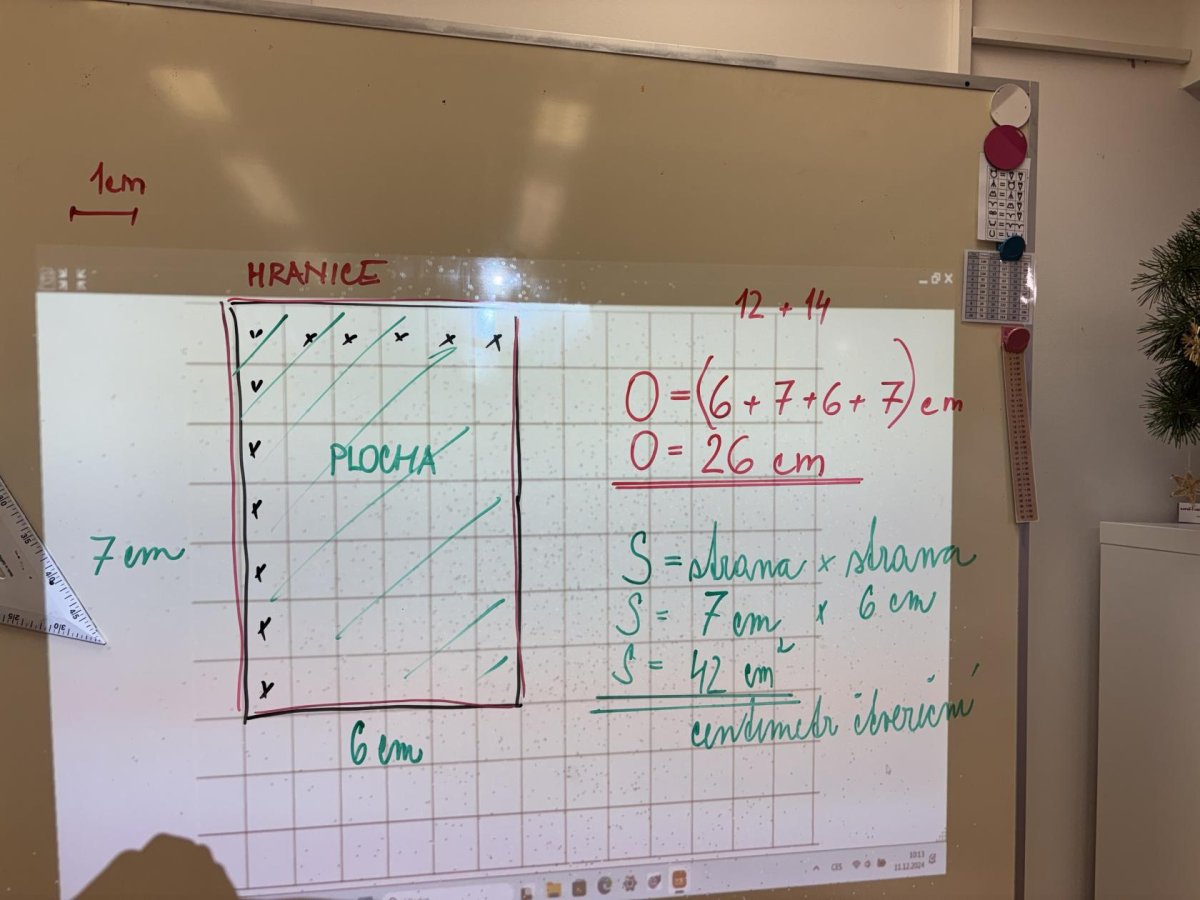 1cm
HRANICE
12 + 14
O = (6 + 7 + 6 + 7) cm
O = 26 cm
PLOCHA
7 cm
S = strana × strana
S = 7 cm × 6 cm
S = 42 cm²
centimetr čtvereční
6 cm
CES
10:13
11.12.2024